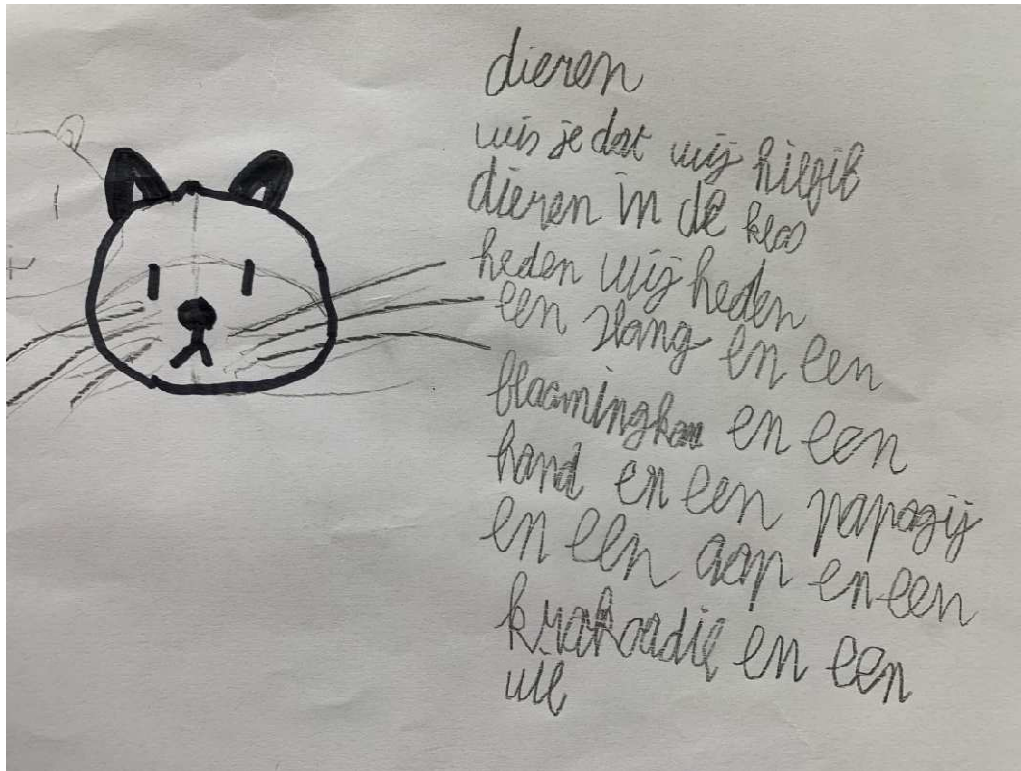 dieren
wis je dat wij hilfil
dieren in de klas
heden wij heden
een slang en een
flaamingkoo en een
hond en een papagij
en een aap en een
krokoodil en een
uil